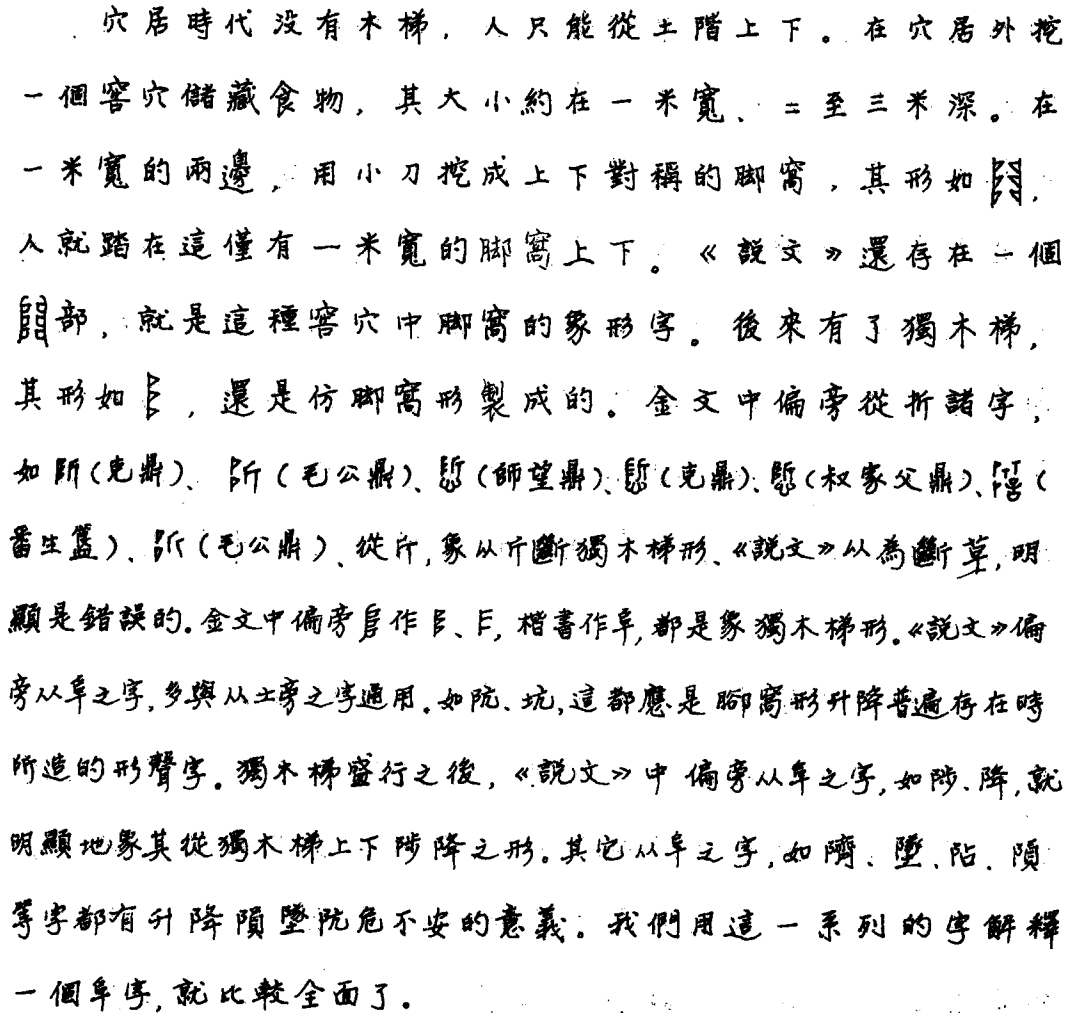 穴居時代没有木梯，人只能從土階上下。在穴居外挖
一個窖穴儲藏食物，其大小約在一米寬、二至三米深。在
一米寬的兩邊，用小刀挖成上下對稱的脚窩，其形如，
人就踏在這僅有一米寬的脚窩上下。《説文》還存在一個
部，就是這種窖穴中脚窩的象形字。後來有了獨木梯，
其形如，還是仿脚窩形製成的。金文中偏旁從折諸字，
如（克鼎）、（毛公鼎）、（師望鼎）、（克鼎）、（叔家父鼎）、（
番生簋）、（毛公鼎）、從，象从斤斷獨木梯形、《説文》以為斷草，明
顯是錯誤的。金文中偏旁作、，楷書作阜，都是象獨木梯形。《説文》偏
旁从阜之字，多與从土旁之字通用。如阬、坑，這都應是腳窩形升降普遍存在時
所造的形聲字。獨木梯盛行之後，《説文》中偏旁从阜之字，如陟、降，就
明顯地象其從獨木梯上下陟降之形。其它从阜之字，如隮、墜、阽、隕
等字都有升降隕墜阢危不安的意義。我們用這一系列的字解釋
一個阜字，就比較全面了。